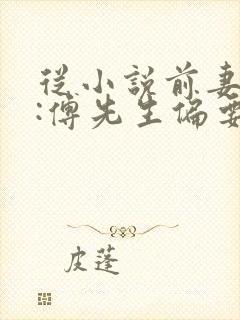 從小說前妻
:傅先生偏要
皮蓬